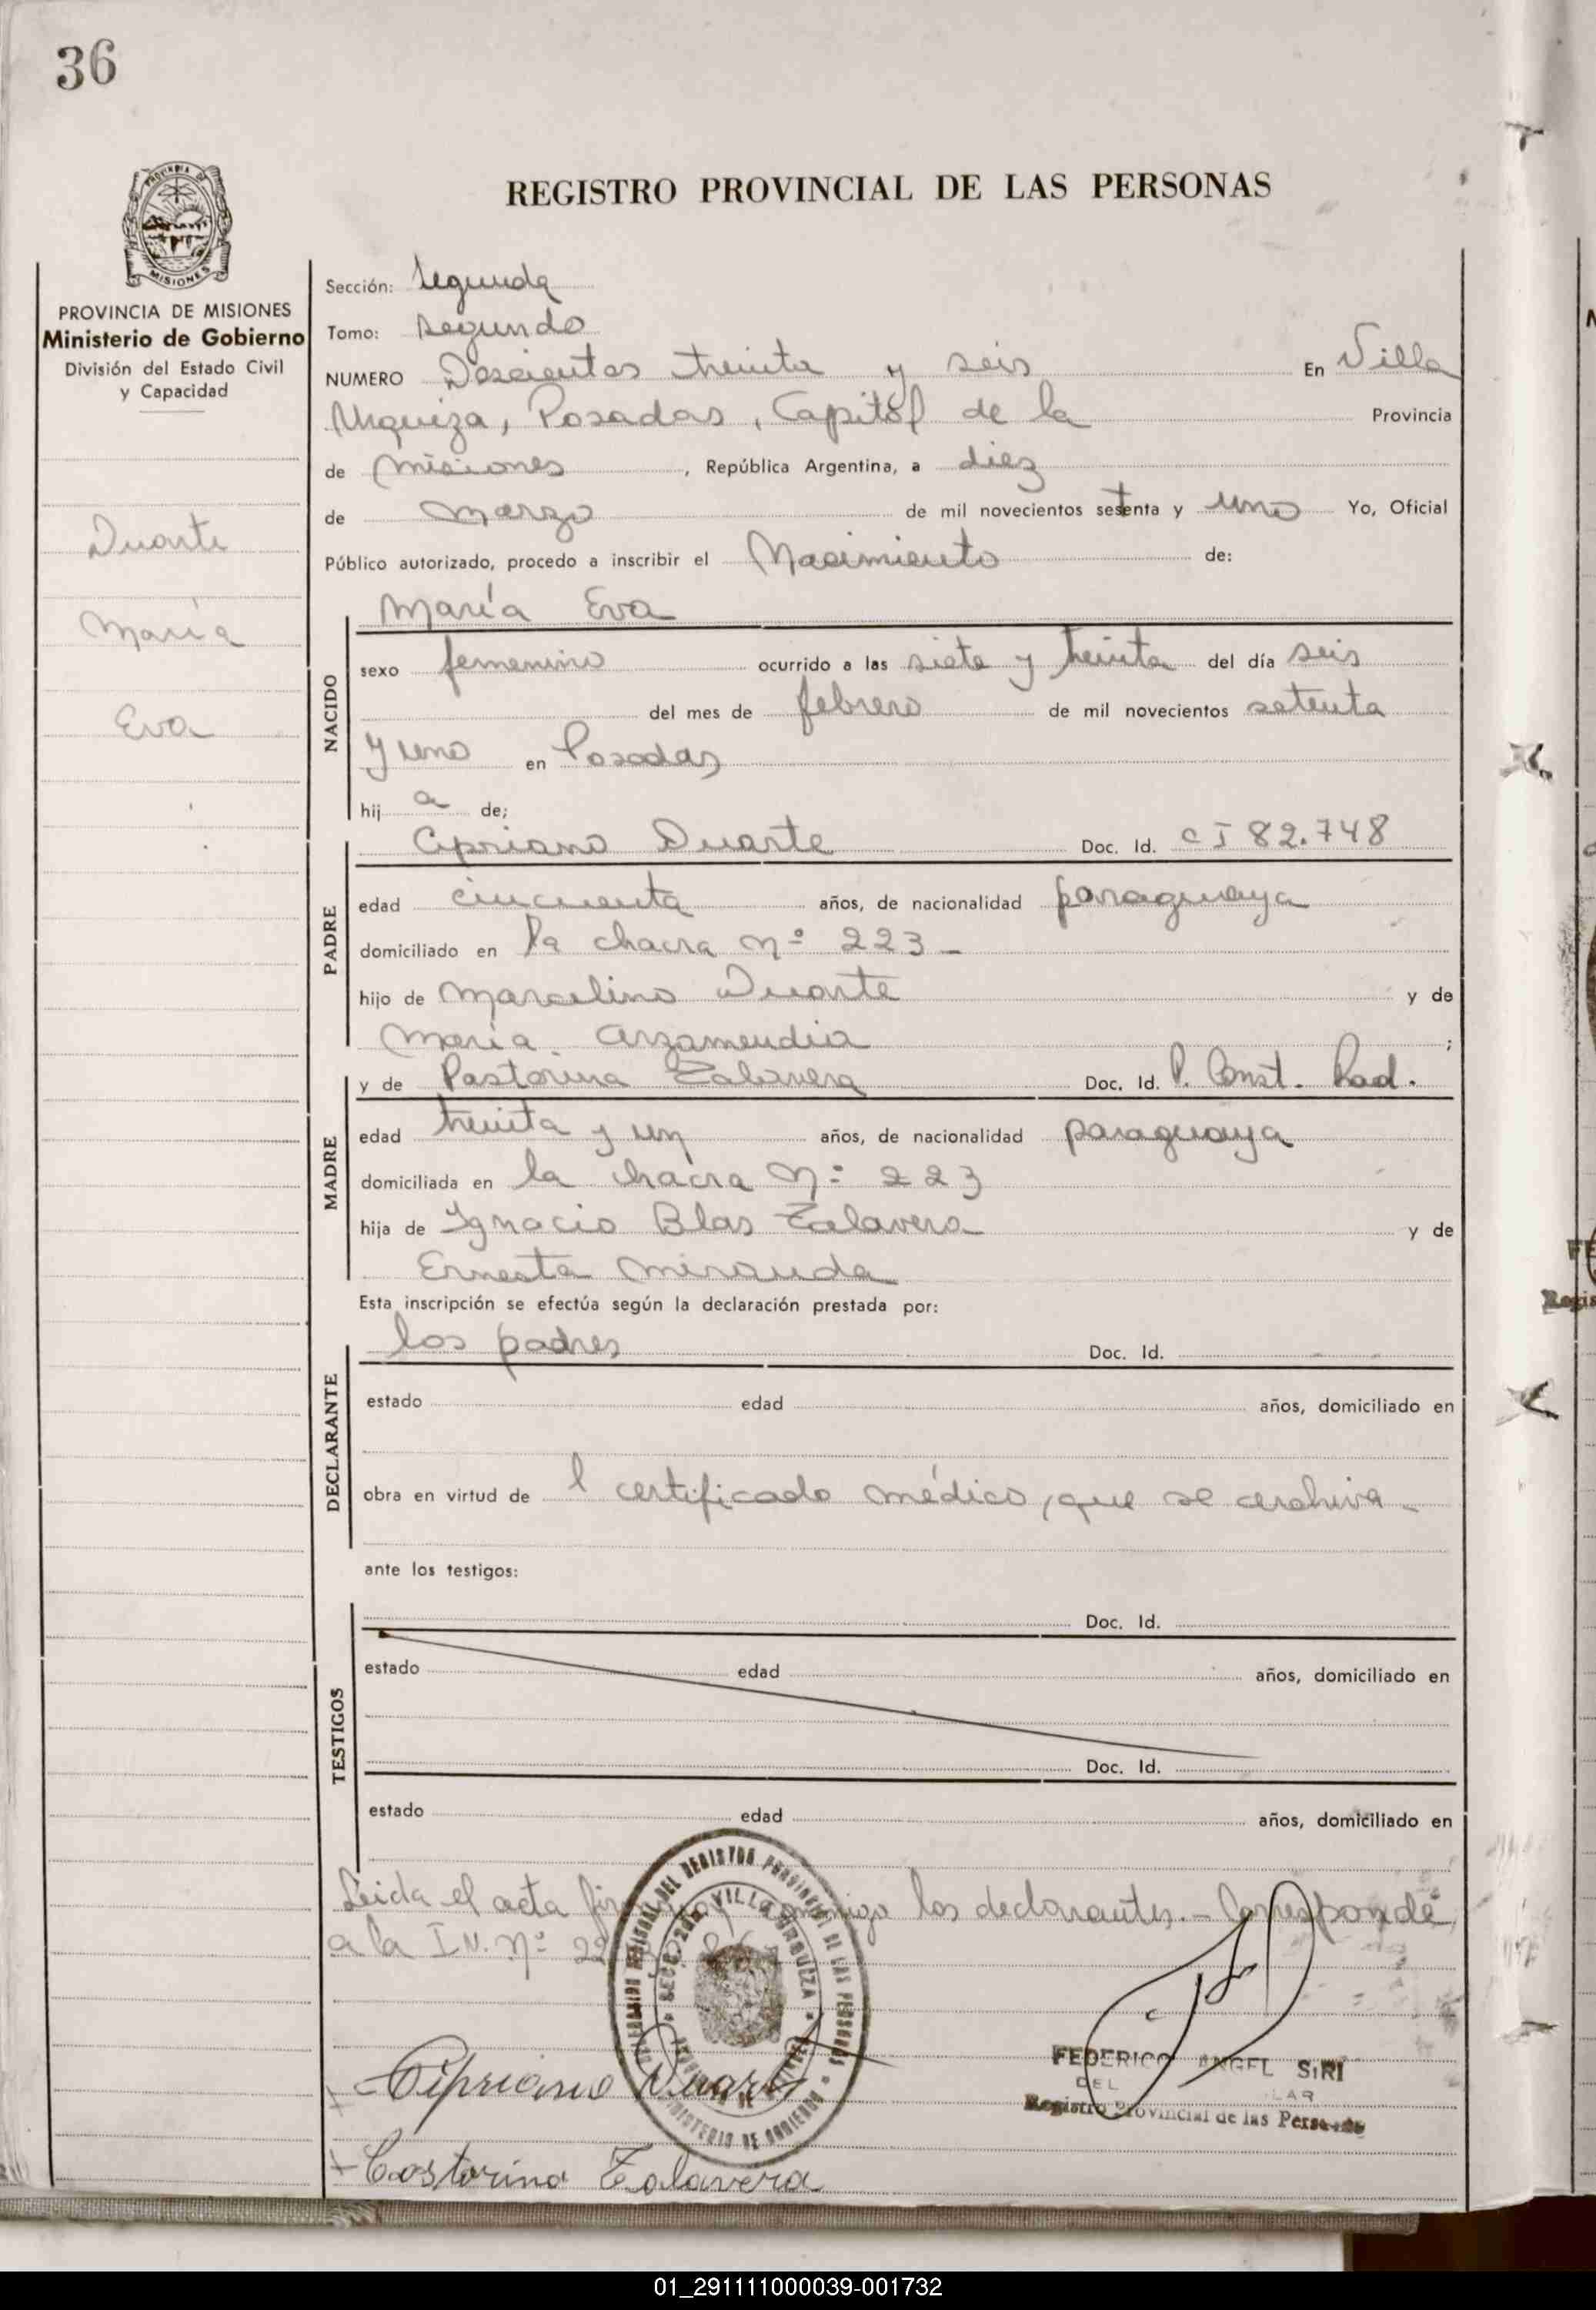 36
PROVINCIA DE MISIONES
MISIONES
PROVINCIA DE MISIONES
Ministerio de Gobierno
División del Estado Civil
y Capacidad
Duarte
María
Eva
REGISTRO PROVINCIAL DE LAS PERSONAS
Sección: Segunda
Tomo: Segundo
NUMERO Doscientos treinta y seis En Villa
Urquiza, Posadas, Capital de la Provincia
de Misiones, República Argentina, a diez
de marzo de mil novecientos setenta y uno Yo, Oficial
Público autorizado, procedo a inscribir el Nacimiento de:
María Eva
NACIDO
sexo femenino ocurrido a las siete y treinta del día seis
del mes de febrero de mil novecientos setenta
y uno en Posadas
hija de;
Cipriano Duarte Doc. Id. CI 82.748
PADRE
edad cincuenta años, de nacionalidad paraguaya
domiciliado en la chacra nº 223 -
hijo de Marcelino Duarte y de
María Arzamendia ;
y de Pastorina Talavera Doc. Id. P. Const. Rad.
MADRE
edad treinta y un años, de nacionalidad paraguaya
domiciliada en la chacra Nº 223
hija de Ignacio Blas Talavera y de
Ernesta Miranda
Esta inscripción se efectúa según la declaración prestada por:
los padres Doc. Id.
DECLARANTE
estado edad años, domiciliado en
obra en virtud de l certificado médico, que se archiva -
ante los testigos:
Doc. Id.
TESTIGOS
estado edad años, domiciliado en
Doc. Id.
estado edad años, domiciliado en
Leida el acta conmigo los declarantes. - Corresponde
a la I N. Nº
REGISTRO PROVINCIAL DE LAS PERSONAS
VILLA URQUIZA
MINISTERIO DE GOBIERNO
Cipriano Duarte
FEDERICO ANGEL SIRI
DEL
Registro Provincial de las Personas
Pastorina Talavera
01_291111000039-001732